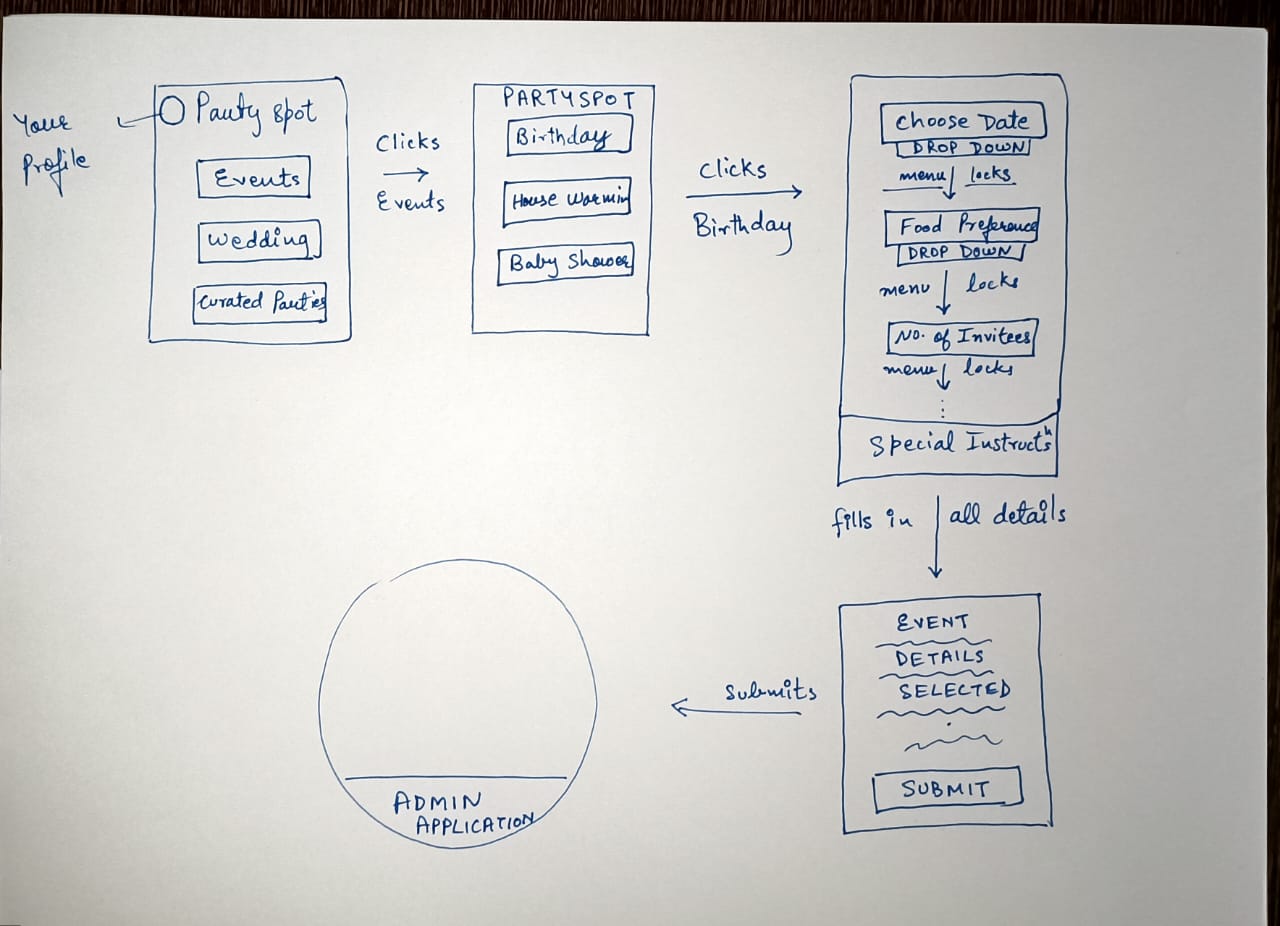 Your
Profile
Party Spot
Events
Wedding
Curated Parties
Clicks
Events
PARTYSPOT
Birthday
House Warmin
Baby Shower
Clicks
Birthday
Choose Date
DROP DOWN
menu locks
Food Preference
DROP DOWN
menu locks
No. of Invitees
menu locks
Special Instructns
fills in all details
EVENT
DETAILS
SELECTED
SUBMIT
Submits
ADMIN
APPLICATION